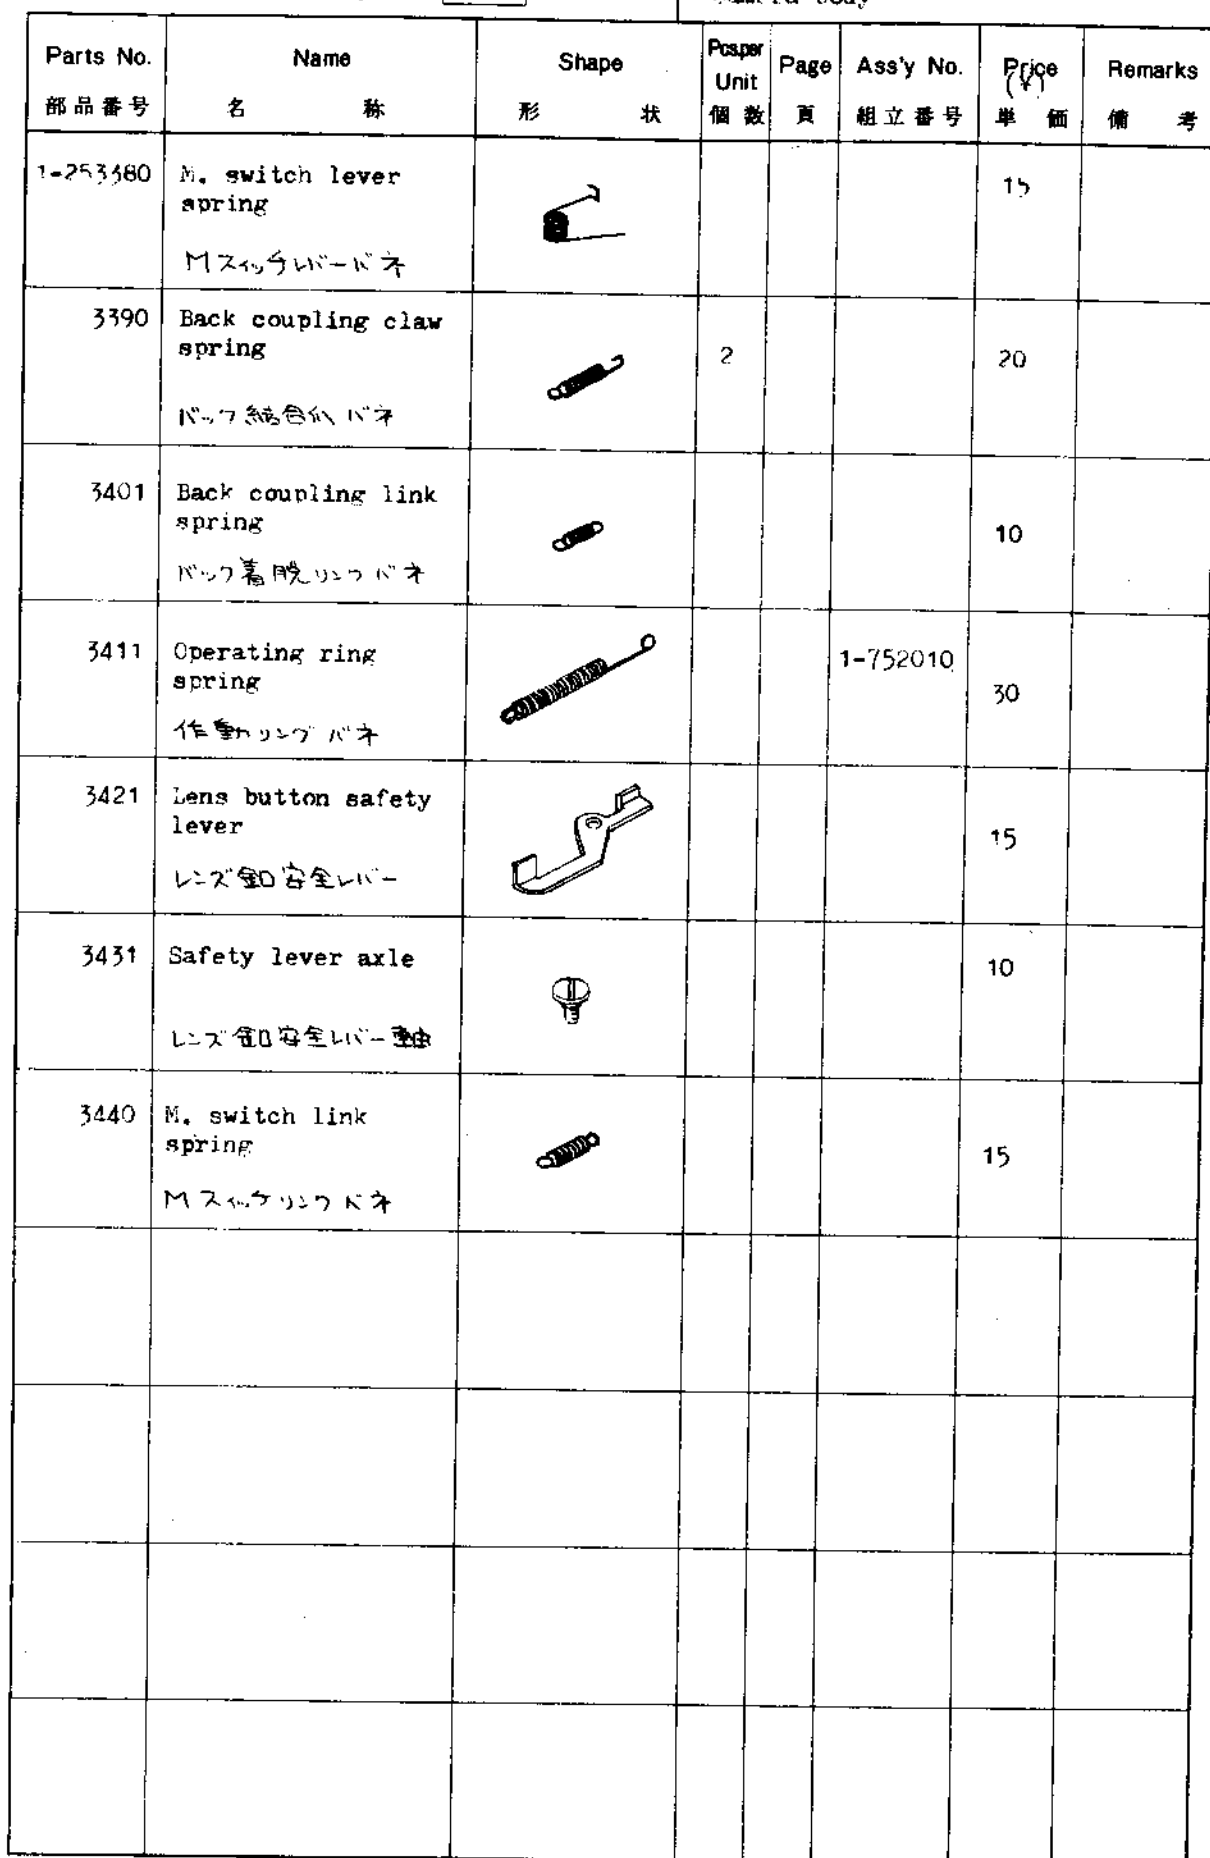 body
Parts No.
部品番号
Name
名 称
Shape
形 状
Pcs.per
Unit
個数
Page
頁
Ass'y No.
組立番号
Price
(¥)
単 価
Remarks
備 考
1-253380
M. switch lever
spring
Mスイッチレバーバネ
15
3390
Back coupling claw
spring
バック結合爪バネ
2
20
3401
Back coupling link
spring
バック着脱リンクバネ
10
3411
Operating ring
spring
作動リングバネ
1-752010
30
3421
Lens button safety
lever
レンズ釦安全レバー
15
3431
Safety lever axle
レンズ釦安全レバー軸
10
3440
M. switch link
spring
Mスイッチリンクバネ
15